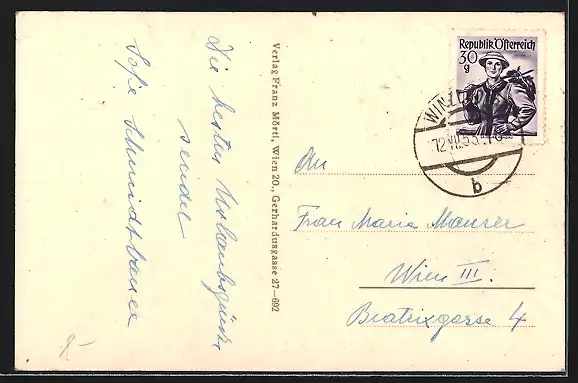 Die besten Urlaubsgrüsse
sendet
Sofie Schmidtbauer
Verlag Franz Mörtl, Wien 20., Gerhardusgasse 27—692
Republik Österreich
30
g
12.VII.53
b
An
Frau Maria Maurer
Wien III.
Beatrixgasse 4